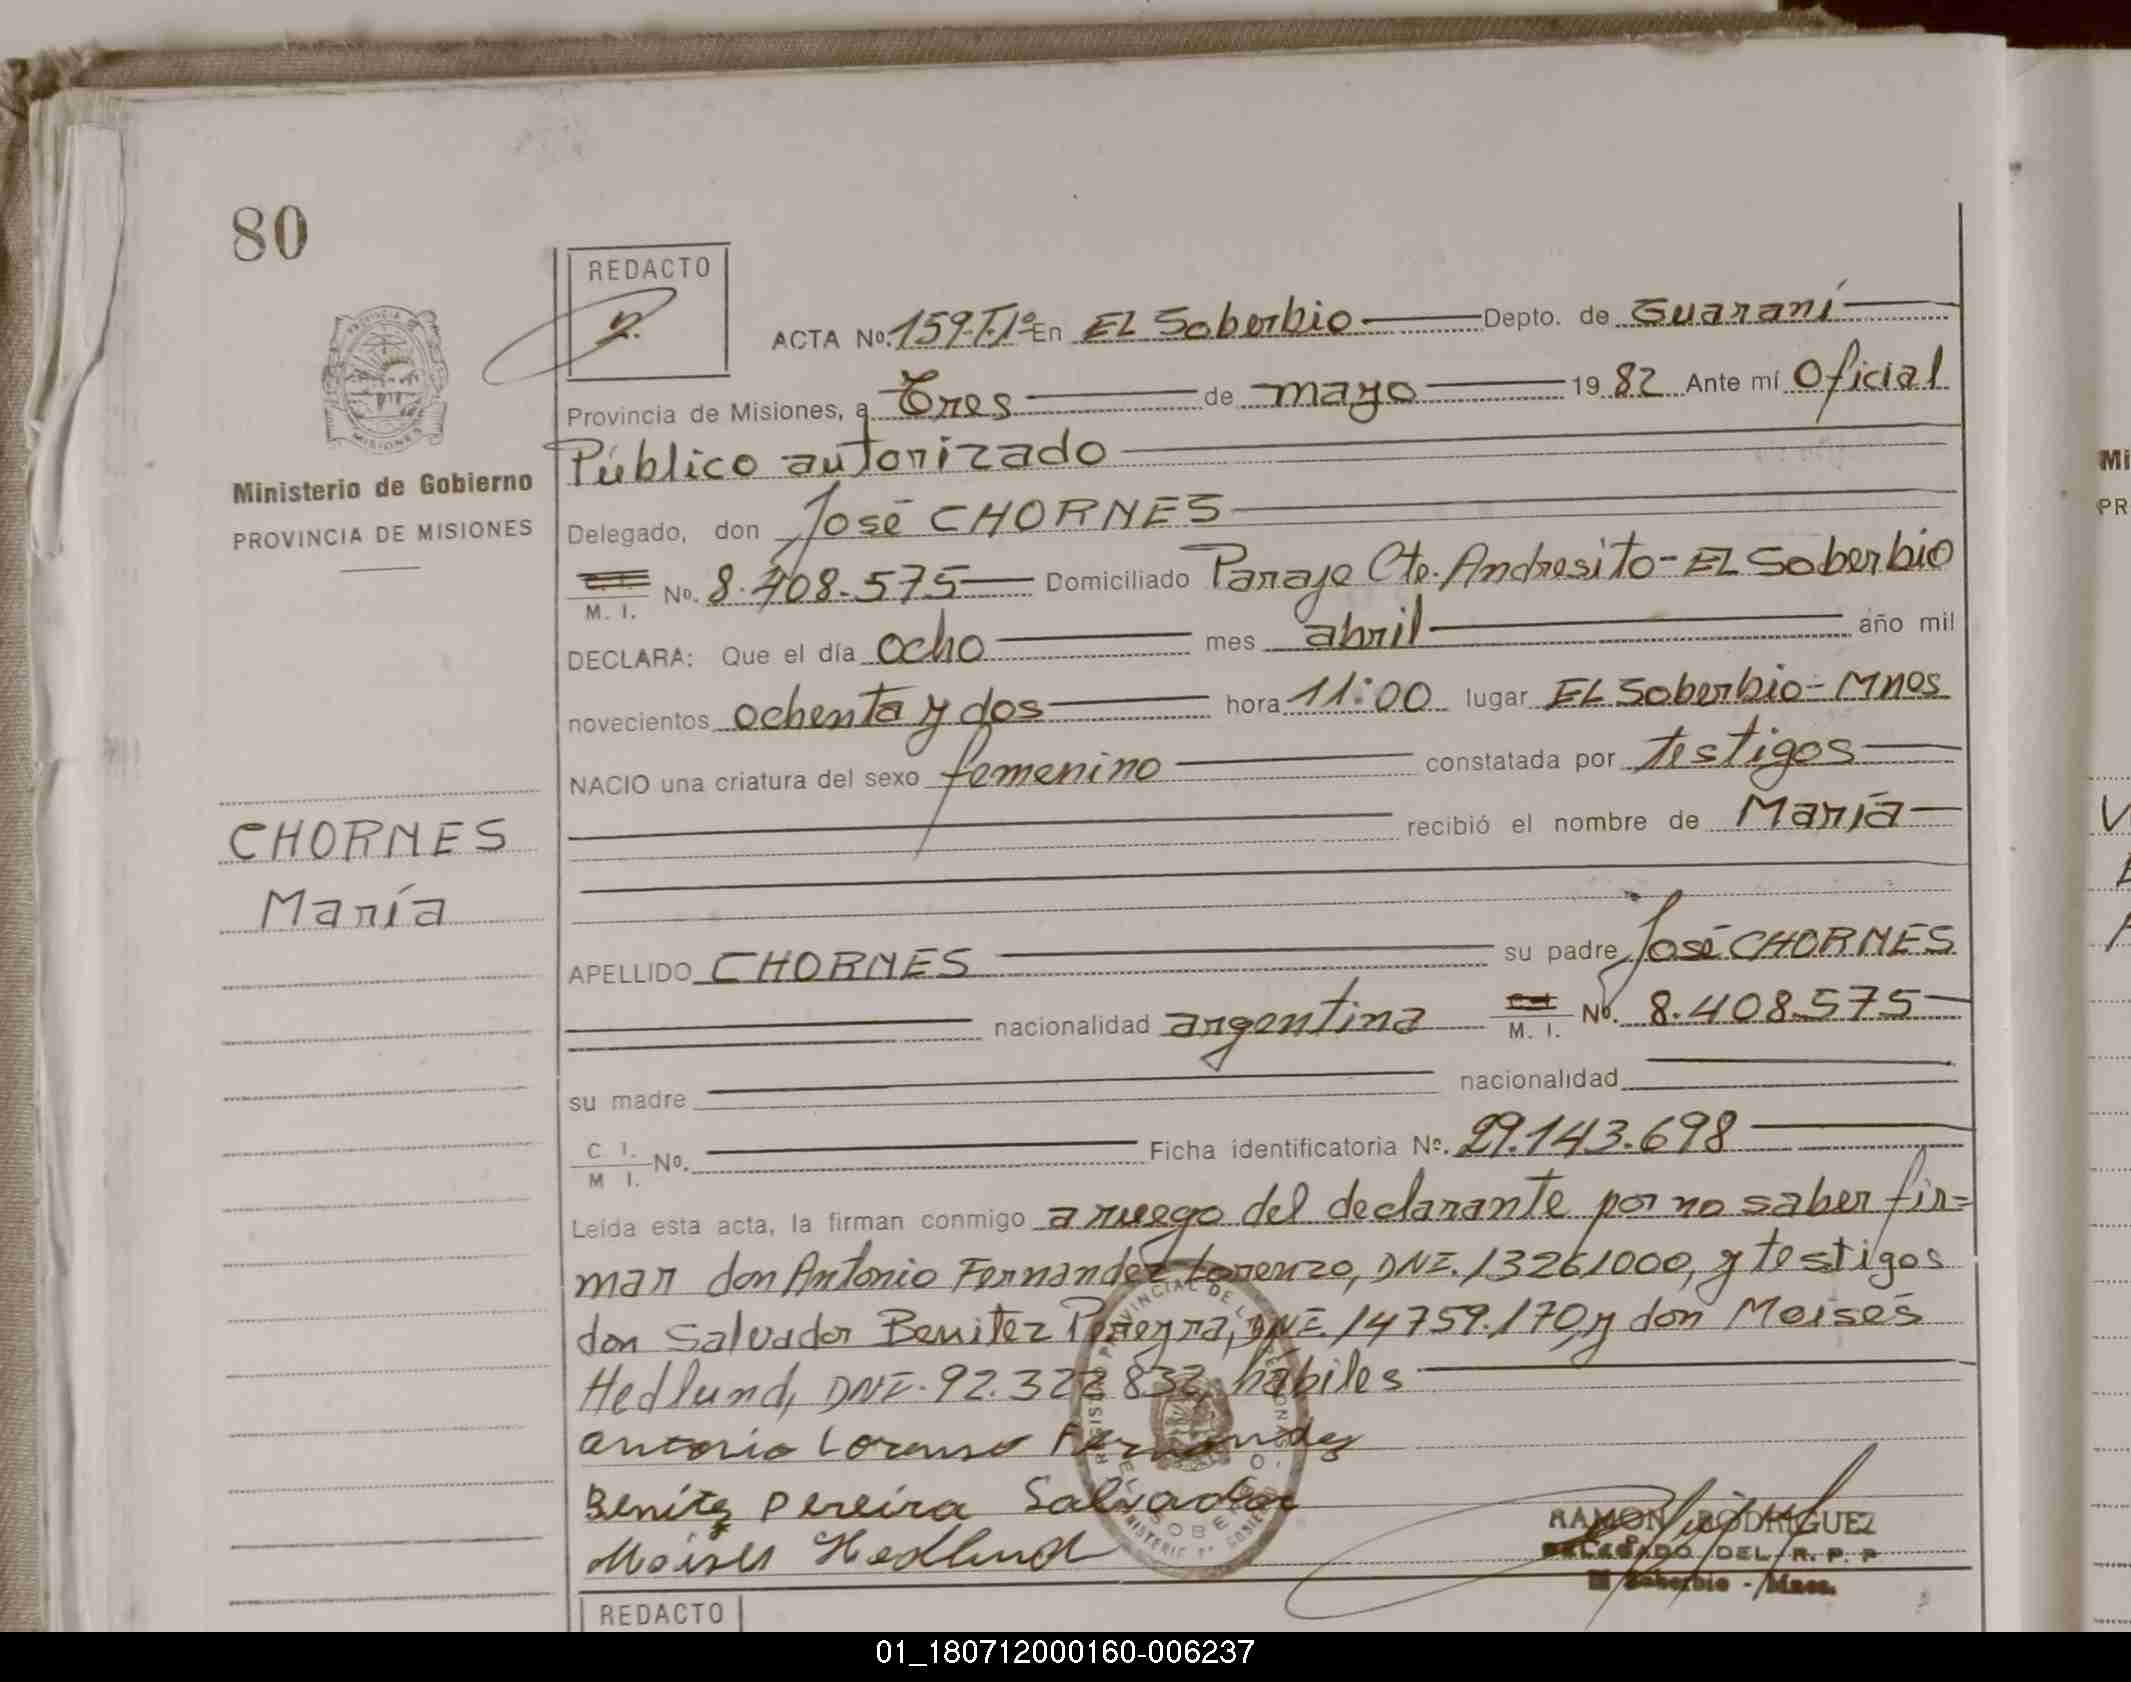 80
REDACTO
ACTA No. 159.T.1º En EL Soberbio Depto. de Guaraní
Provincia de Misiones, a Tres de mayo 19 82 Ante mí Oficial
Público autorizado
Ministerio de Gobierno
PROVINCIA DE MISIONES
Delegado, don José CHORNES
M. I. No. 8.408.575 Domiciliado Paraje Cte. Andresito - EL Soberbio
DECLARA: Que el día ocho mes abril año mil
novecientos ochenta y dos hora 11:00 lugar EL Soberbio - Mnes
NACIO una criatura del sexo femenino constatada por testigos
recibió el nombre de María
CHORNES
María
APELLIDO CHORNES su padre José CHORNES
nacionalidad argentina M. I. No. 8.408.575
su madre nacionalidad
C I. M I. No. Ficha identificatoria Nº. 29.143.698
Leída esta acta, la firman conmigo a ruego del declarante por no saber fir=
mar don Antonio Fernandez Lorenzo, DNI. 13261000, y testigos
don Salvador Benitez Pereyra, DNI. 14759.170, y don Moisés
Hedlund, DNI. 92.322 832, hábiles
antonio Lorenso Fernandez
Benitez Pereira Salvador
Moises Hedlund
RAMON RODRIGUEZ
DELEGADO DEL R. P. P
El Soberbio - Mnes.
REDACTO
01_180712000160-006237